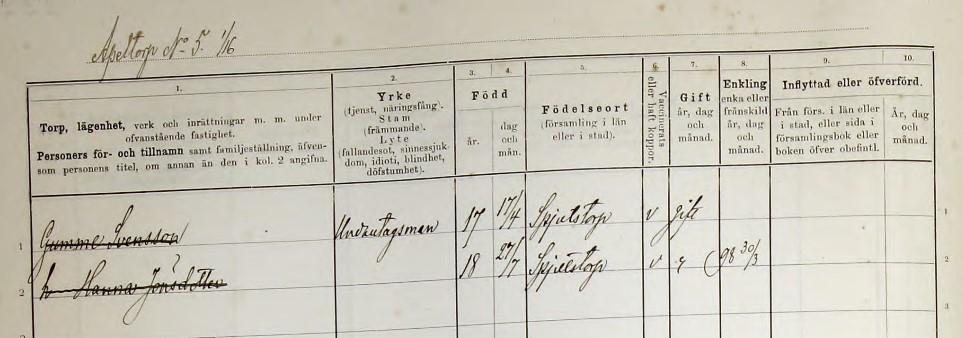 Apeltorp No 5. 1/16
1.
Torp, lägenhet, verk och inrättningar m. m. under
ofvanstående fastighet.
Personers för- och tillnamn samt familjeställning, äfven-
som personens titel, om annan än den i kol. 2 angifna.
2.
Yrke
(tjenst, näringsfång).
Stam
(främmande).
Lyte
(fallandesot, sinnessjuk-
dom, idioti, blindhet,
döfstumhet).
3.
4.
Född
år.
dag
och
mån.
5.
Födelseort
(församling i län
eller i stad).
6.
Vaccinerats
eller haft koppor.
7.
Gift
år, dag
och
månad.
8.
Enkling
enka eller
frånskild
år, dag
och
månad.
9.
10.
Inflyttad eller öfverförd.
Från förs. i län eller
i stad, eller sida i
församlingsbok eller
boken öfver obefintl.
År, dag
och
månad.
1 Gumme Svensson Undantagsman 17 17/4 Spjutstorp v gift 1
2 h Hanna Jönsdotter 18 27/7 Spjutstorp v g 98 30/3 2
3